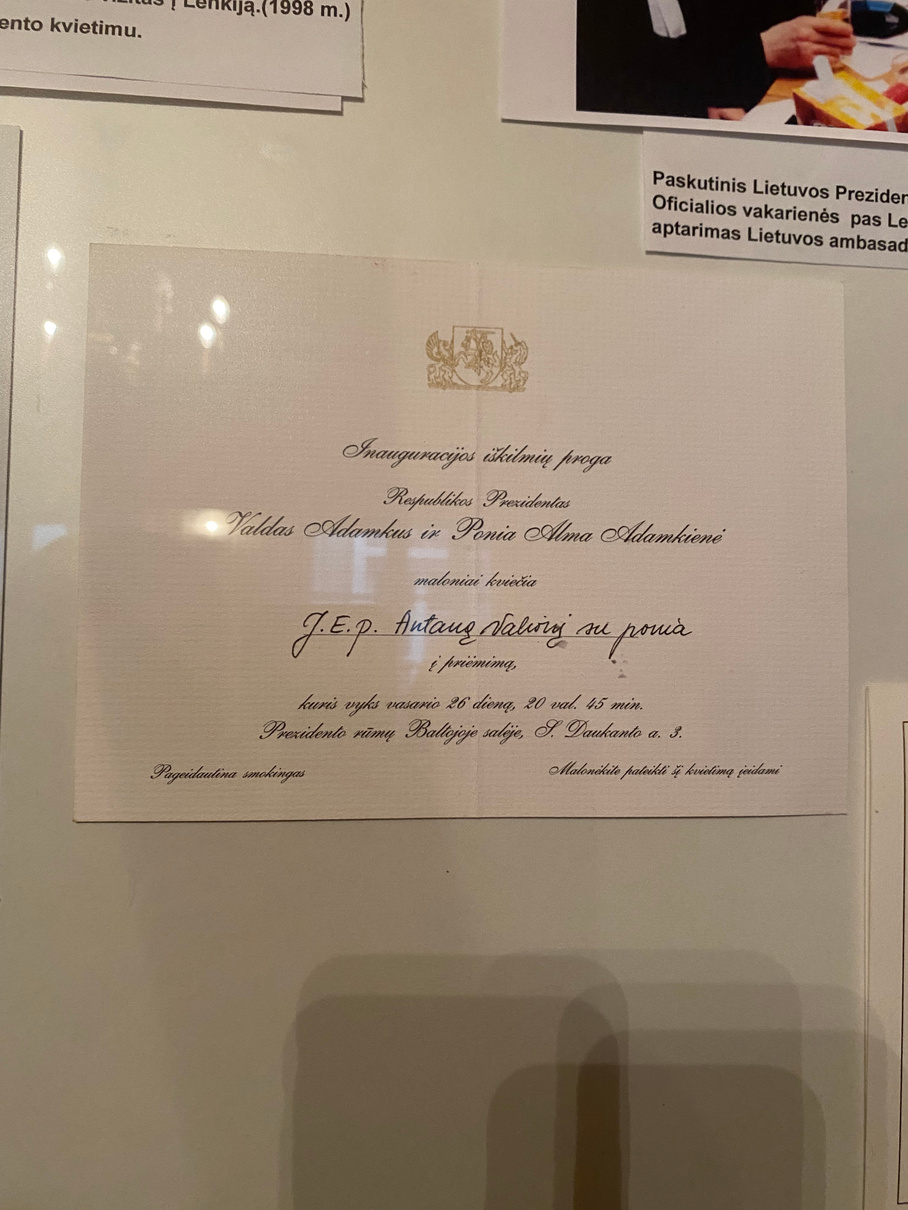 į Lenkiją.(1998 m.)
ento kvietimu.
Paskutinis Lietuvos Preziden
Oficialios vakarienės pas Le
aptarimas Lietuvos ambasad
Inauguracijos iškilmių proga
Respublikos Prezidentas
Valdas Adamkus ir Ponia Alma Adamkienė
maloniai kviečia
J.E.p. Antaną Valionį su ponia
į priėmimą,
kuris vyks vasario 26 dieną, 20 val. 45 min.
Prezidento rūmų Baltojoje salėje, S. Daukanto a. 3.
Pageidautina smokingas
Malonėkite pateikti šį kvietimą įeidami